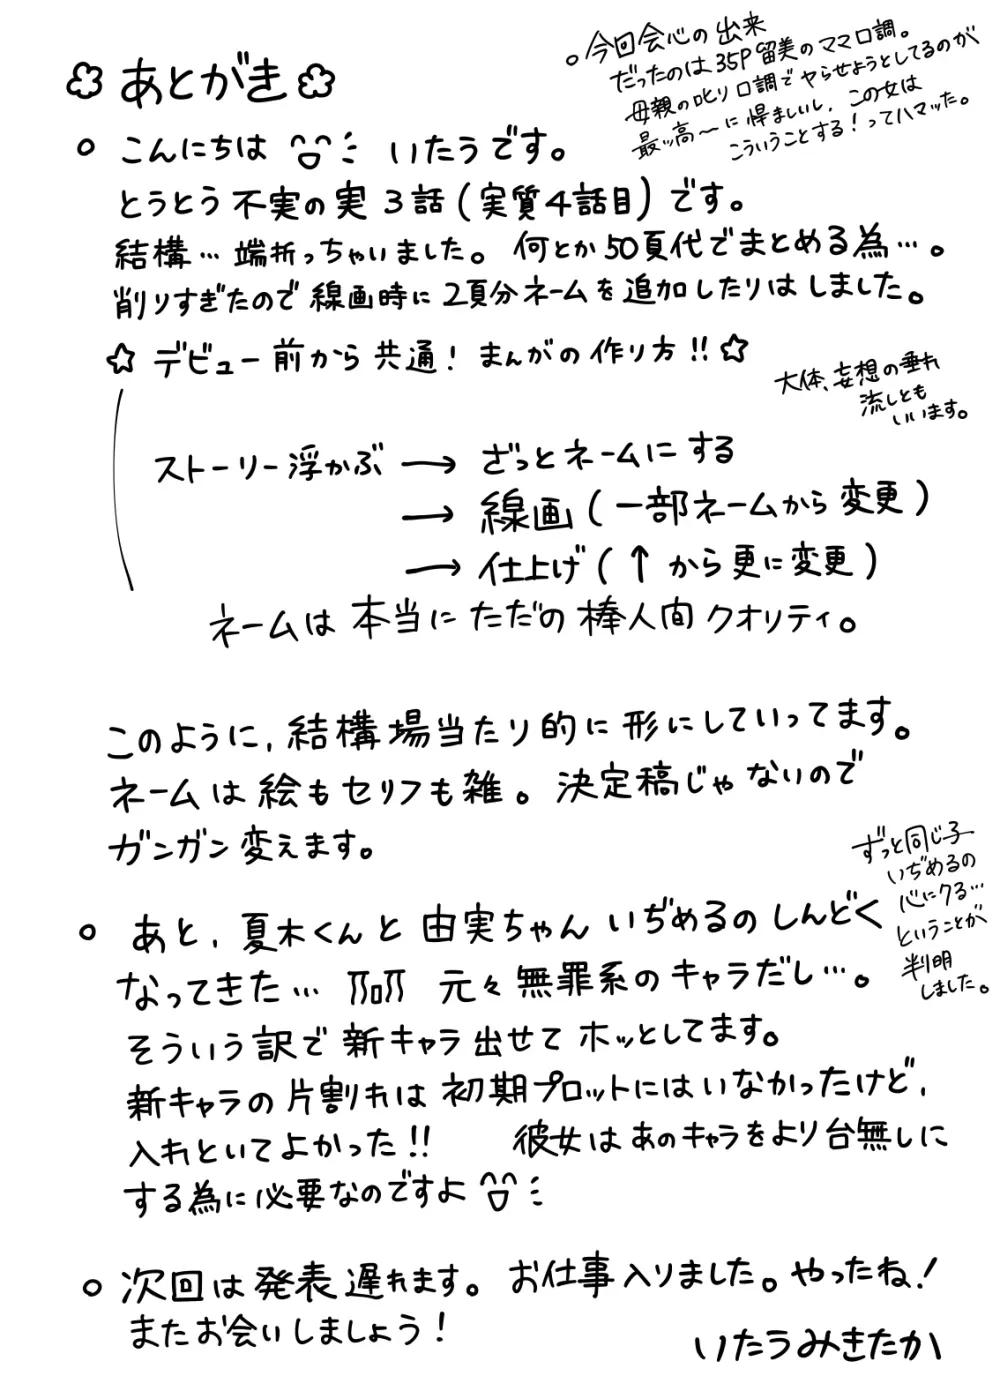 あとがき
○今回会心の出来
だったのは35P留美のママ口調。
母親の叱り口調でヤらせようとしてるのが
最ッ高〜に悍ましいし、この女は
こういうことする!ってハマった。
○ こんにちは いたうです。
とうとう不実の実3話(実質4話目)です。
結構…端折っちゃいました。何とか50頁代でまとめる為…。
削りすぎたので線画時に2頁分ネームを追加したりはしました。
☆デビュー前から共通!まんがの作り方!!☆
大体、妄想の垂れ
流しとも
いいます。
ストーリー浮かぶ → ざっとネームにする
→ 線画(一部ネームから変更)
→ 仕上げ(↑から更に変更)
ネームは本当にただの棒人間クオリティ。
このように、結構場当たり的に形にしていってます。
ネームは絵もセリフも雑。決定稿じゃないので
ガンガン変えます。
○ あと、夏木くんと由実ちゃんいぢめるのしんどく
なってきた… 元々無罪系のキャラだし…。
ずっと同じ子
いぢめるの
心にクる…
ということが
判明
しました。
そういう訳で新キャラ出せてホッとしてます。
新キャラの片割れは初期プロットにはいなかったけど、
入れといてよかった!! 彼女はあのキャラをより台無しに
する為に必要なのですよ
○ 次回は発表遅れます。お仕事入りました。やったね!
またお会いしましょう!
いたうみきたか